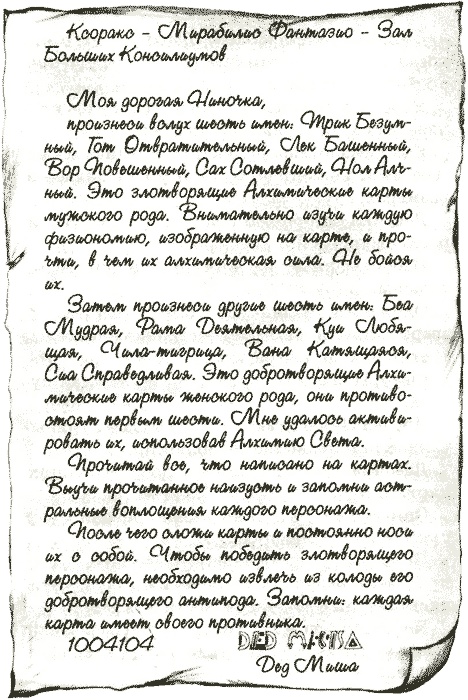 Ксоракс – Мирабилис Фантазио – Зал
Больших Консилиумов
Моя дорогая Ниночка,
произнеси вслух шесть имен: Трик Безум-
ный, Тот Отвратительный, Лек Башенный,
Вор Повешенный, Сах Сотлевший, Нол Алч-
ный. Это злотворящие Алхимические карты
мужского рода. Внимательно изучи каждую
физиономию, изображенную на карте, и про-
чти, в чем их алхимическая сила. Не бойся
их.
Затем произнеси другие шесть имен: Беа
Мудрая, Рама Деятельная, Куи Любя-
щая, Чила-тигрица, Вана Катящаяся,
Сиа Справедливая. Это добротворящие Алхи-
мические карты женского рода, они противо-
стоят первым шести. Мне удалось активи-
ровать их, использовав Алхимию Света.
Прочитай все, что написано на картах.
Выучи прочитанное наизусть и запомни аст-
ральные воплощения каждого персонажа.
После чего сложи карты и постоянно носи
их с собой. Чтобы победить злотворящего
персонажа, необходимо извлечь из колоды его
добротворящего антипода. Запомни: каждая
карта имеет своего противника.
1004104
Дед Миша